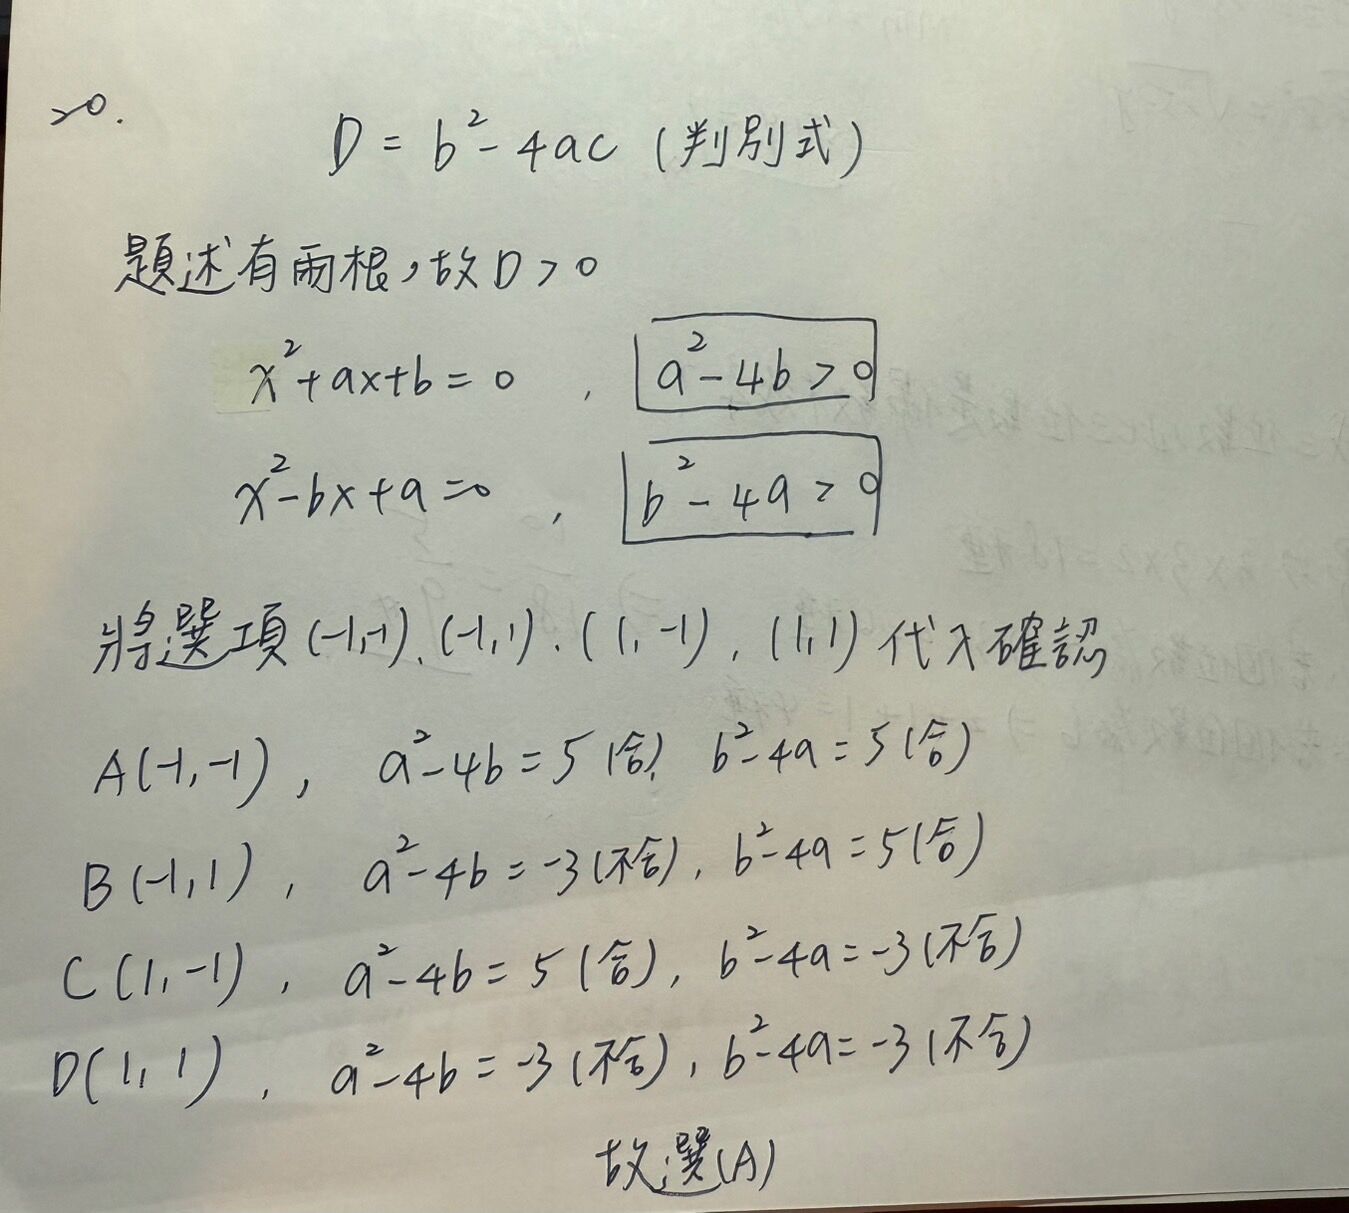 20.
D = b² - 4ac (判別式)
題述有兩根,故D > 0
x² + ax + b = 0 , a² - 4b > 0
x² - bx + a = 0 , b² - 4a > 0
將選項(-1,-1)、(-1,1)、(1,-1)、(1,1)代入確認
A(-1,-1), a² - 4b = 5 (合), b² - 4a = 5 (合)
B(-1,1), a² - 4b = -3 (不合), b² - 4a = 5 (合)
C(1,-1), a² - 4b = 5 (合), b² - 4a = -3 (不合)
D(1,1), a² - 4b = -3 (不合), b² - 4a = -3 (不合)
故選(A)